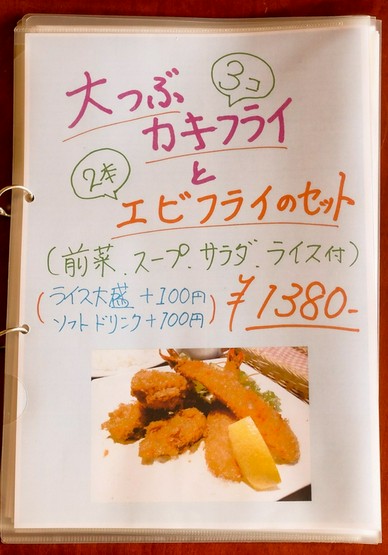 大つぶ
3コ
カキフライ
と
2本
エビフライのセット
(前菜、スープ、サラダ、ライス付)
(ライス大盛 +100円
ソフトドリンク+100円)
¥1380-